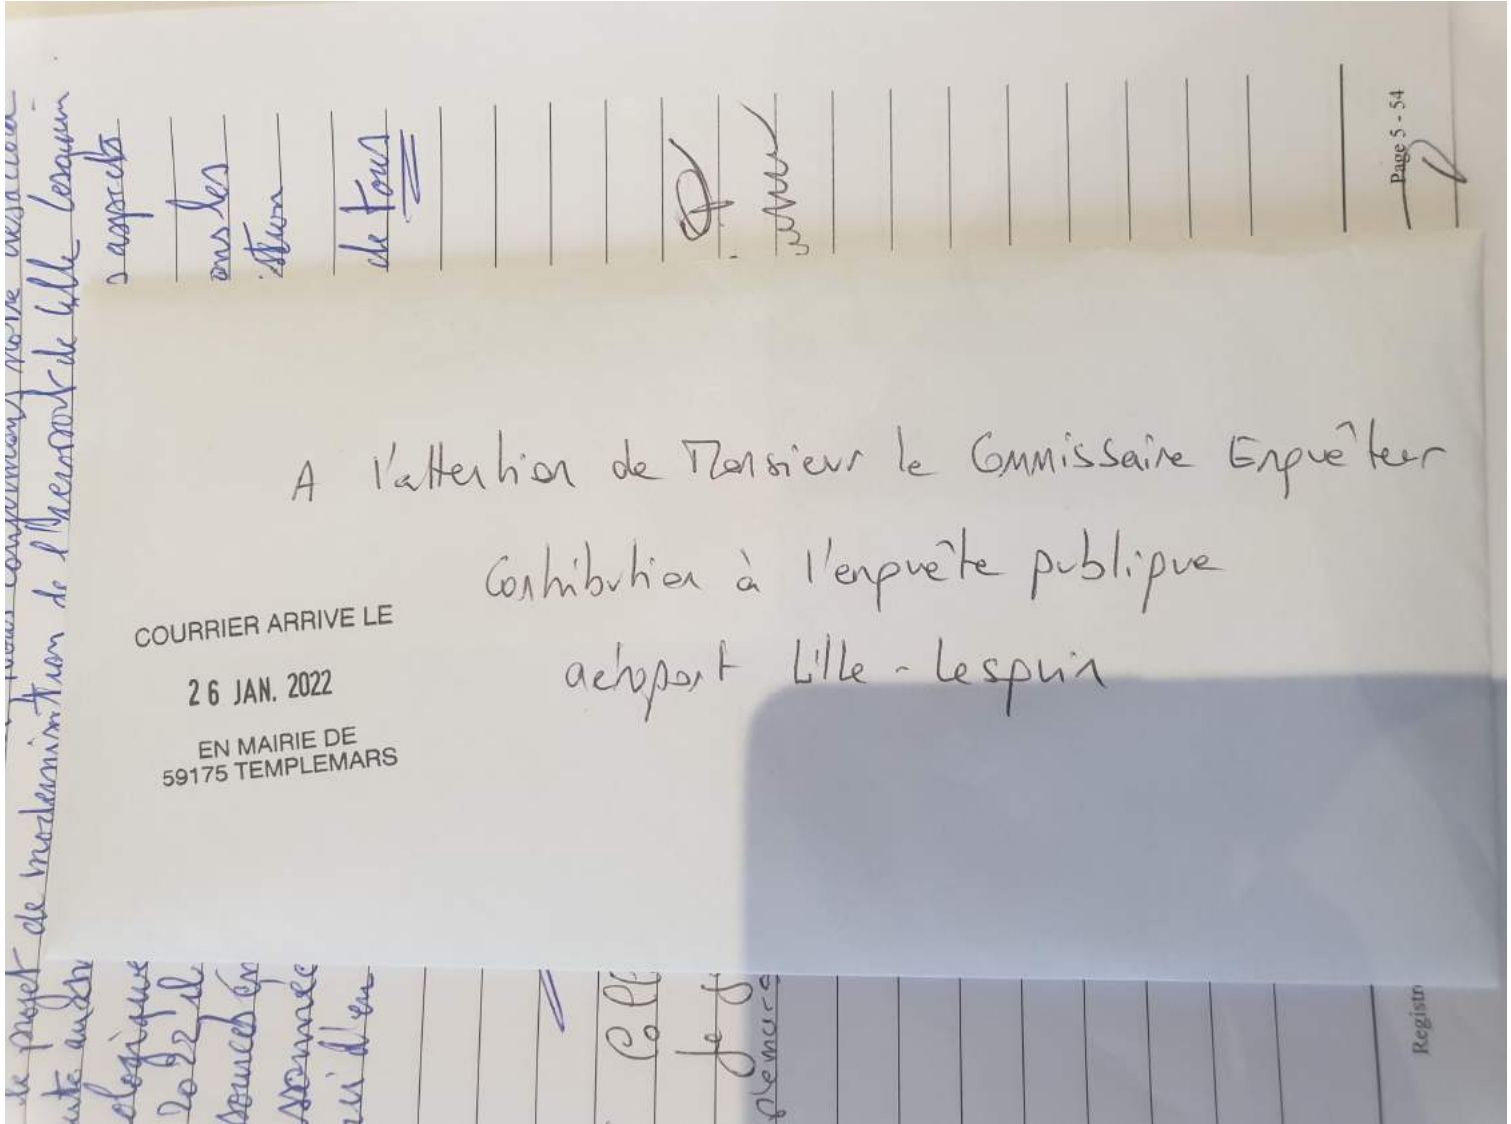 A l'attention de Monsieur le Commissaire Enquêteur
Contribution à l'enquête publique
aéroport Lille - Lesquin
COURRIER ARRIVE LE
26 JAN. 2022
EN MAIRIE DE
59175 TEMPLEMARS
confirmons notre
le projet de modernisation de l'Aeroport de Lille Lesquin
aspects
ologique
ons les
2022 il
sources en
de tous
Coll
Page 5 - 54
Registr